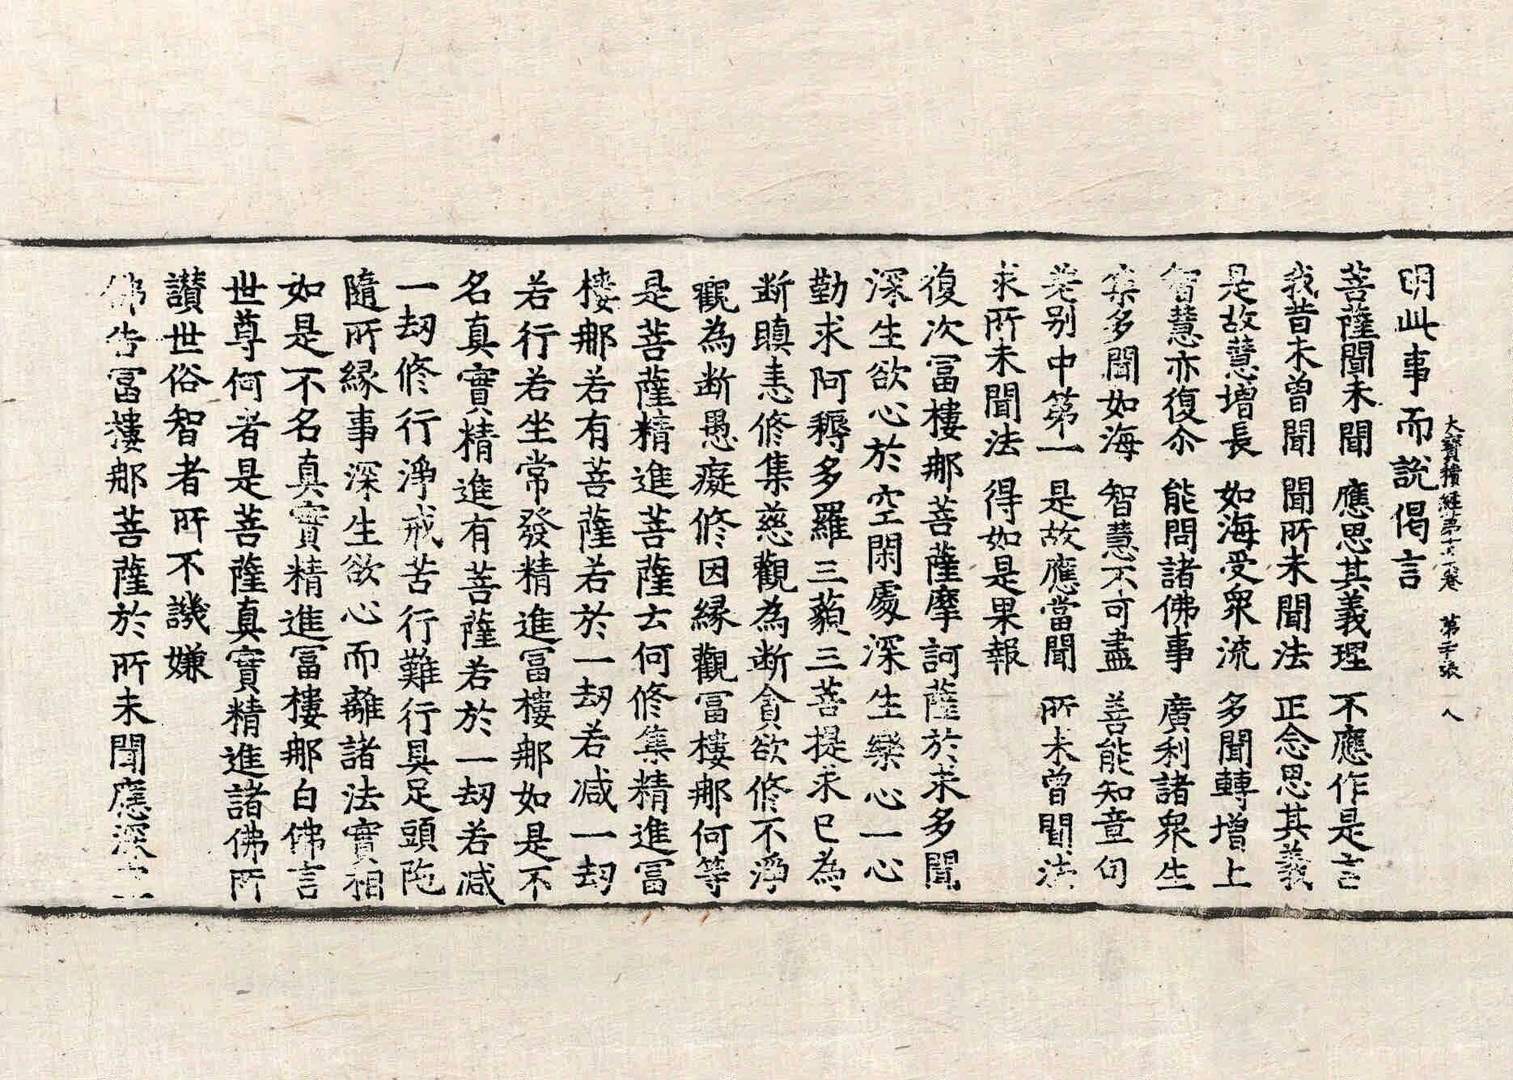 大寶積經第七十七卷 第二十張 人
明此事而說偈言
菩薩聞未聞 應思其義理 不應作是言
我昔未曾聞 聞所未聞法 正念思其義
是故慧增長 如海受衆流 多聞轉增上
智慧亦復尒 能問諸佛事 廣利諸衆生
集多聞如海 智慧不可盡 善能知章句
差别中第一 是故應當聞 所未曾聞法
求所未聞法 得如是果報
復次冨樓那菩薩摩訶薩於求多聞
深生欲心於空閑處深生樂心一心
勤求阿耨多羅三藐三菩提求已為
断瞋恚修集慈觀為断貪欲修不淨
觀為断愚癡修因緣觀冨樓那何等
是菩薩精進菩薩云何修集精進冨
樓那若有菩薩若於一劫若减一劫
若行若坐常發精進冨樓那如是不
名真實精進有菩薩若於一劫若减
一劫修行淨戒苦行難行具足頭陁
隨所緣事深生欲心而離諸法實相
如是不名真實精進冨樓那白佛言
世尊何者是菩薩真實精進諸佛所
讃世俗智者所不譏嫌
佛告冨樓那菩薩於所未聞應深